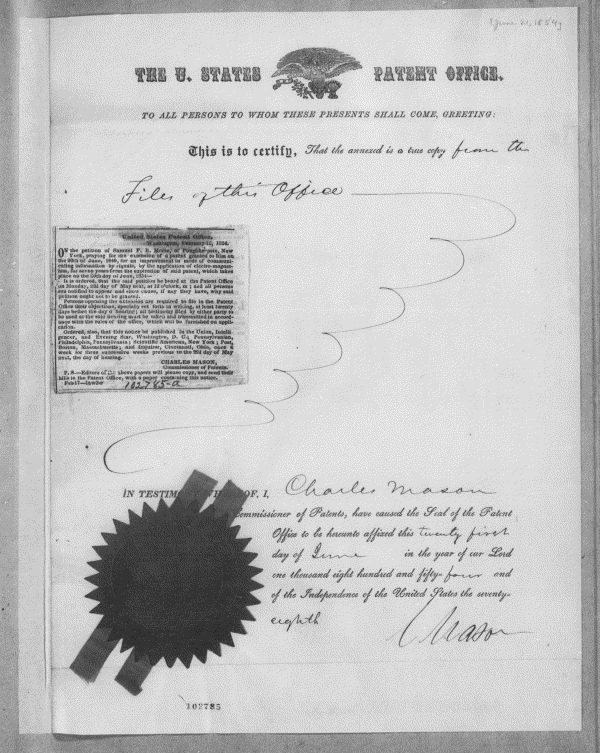 (June 21, 1854)
THE U. STATES PATENT OFFICE.
TO ALL PERSONS TO WHOM THESE PRESENTS SHALL COME, GREETING:
This is to certify, That the annexed is a true copy from the
Files of this Office
United States Patent Office,
Washington, February 15, 1854.
ON the petition of Samuel F. B. Morse, of Poughkeepsie, New
York, praying for the extension of a patent granted to him on
the 20th of June, 1840, for an improvement in mode of communi-
cating information by signals, by the application of electro-magnet-
ism, for seven years from the expiration of said patent, which takes
place on the 20th day of June, 1854—
It is ordered, that the said petition be heard at the Patent Office
on Monday, 22d day of May next, at 12 o'clock, m; and all persons
are notified to appear and show cause, if any they have, why said
petition ought not to be granted.
Persons opposing the extension are required to file in the Patent
Office their objections, specially set forth in writing, at least twenty
days before the day of hearing; all testimony filed by either party to
be used at the said hearing must be taken and transmitted in accord-
ance with the rules of the office, which will be furnished on appli-
cation.
Ordered, also, that this notice be published in the Union, Intelli-
gencer, and Evening Star, Washington, D. C.; Pennsylvanian,
Philadelphia, Pennsylvania; Scientific American, New York; Post,
Boston, Massachusetts; and Enquirer, Cincinnati, Ohio, once a
week for three successive weeks previous to the 22d day of May
next, the day of hearing.
CHARLES MASON,
Commissioner of Patents.
P. S.—Editors of the above papers will please copy, and send their
bills to the Patent Office, with a paper containing this notice.
Feb17—law3w
102785-a
IN TESTIM WH OF, I, Charles Mason
ommissioner of Patents, have caused the Seal of the Patent
Office to be hereunto affixed this twenty first
day of June in the year of our Lord
one thousand eight hundred and fifty-four and
of the Independence of the United States the seventy-
eighth
C Mason
102785